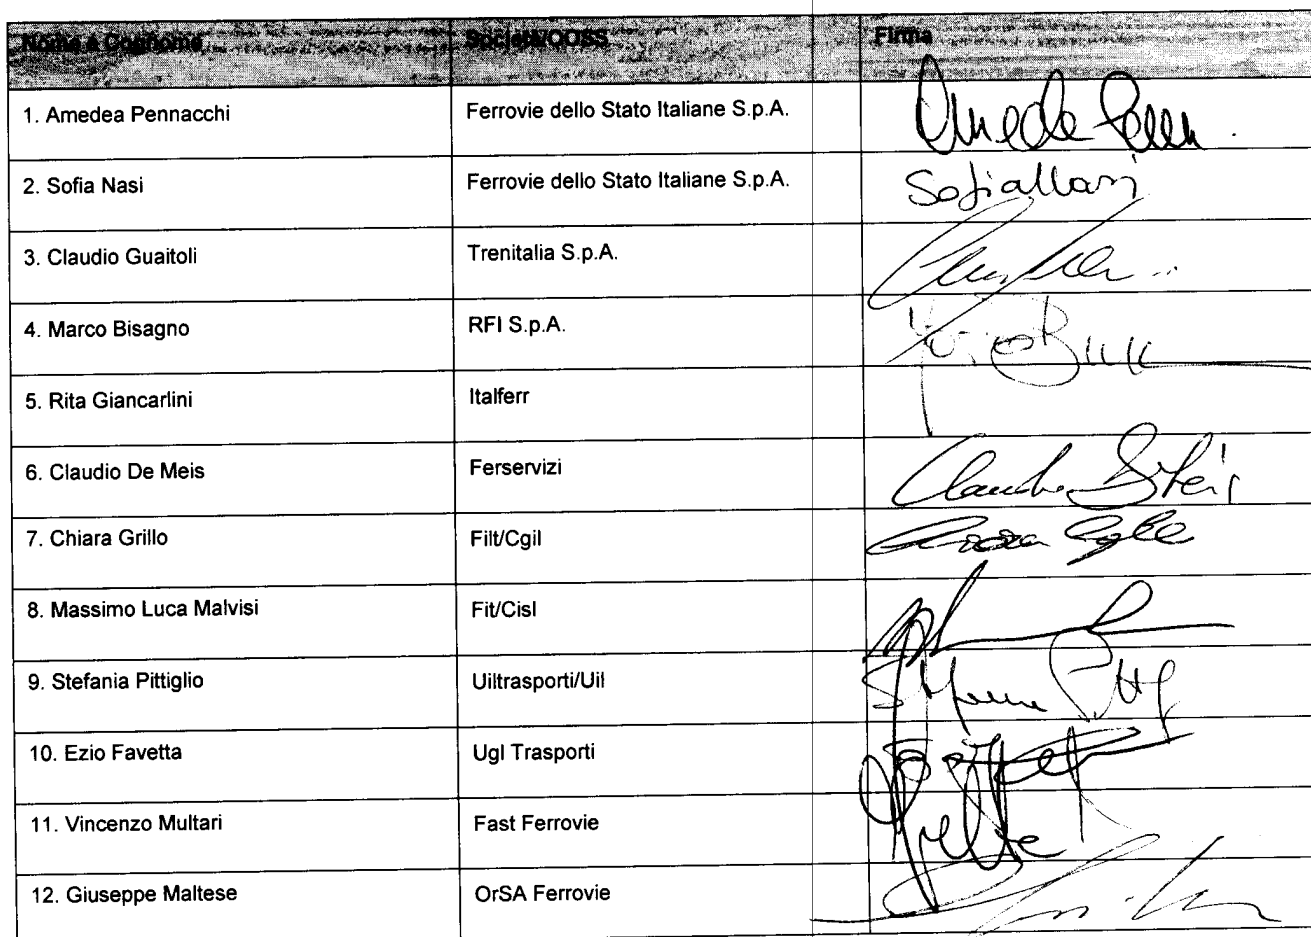 Nome e Cognome Società/OOSS Firma
1. Amedea Pennacchi Ferrovie dello Stato Italiane S.p.A.
2. Sofia Nasi Ferrovie dello Stato Italiane S.p.A. Sofia Nasi
3. Claudio Guaitoli Trenitalia S.p.A.
4. Marco Bisagno RFI S.p.A.
5. Rita Giancarlini Italferr
6. Claudio De Meis Ferservizi
7. Chiara Grillo Filt/Cgil
8. Massimo Luca Malvisi Fit/Cisl
9. Stefania Pittiglio Uiltrasporti/Uil
10. Ezio Favetta Ugl Trasporti
11. Vincenzo Multari Fast Ferrovie
12. Giuseppe Maltese OrSA Ferrovie